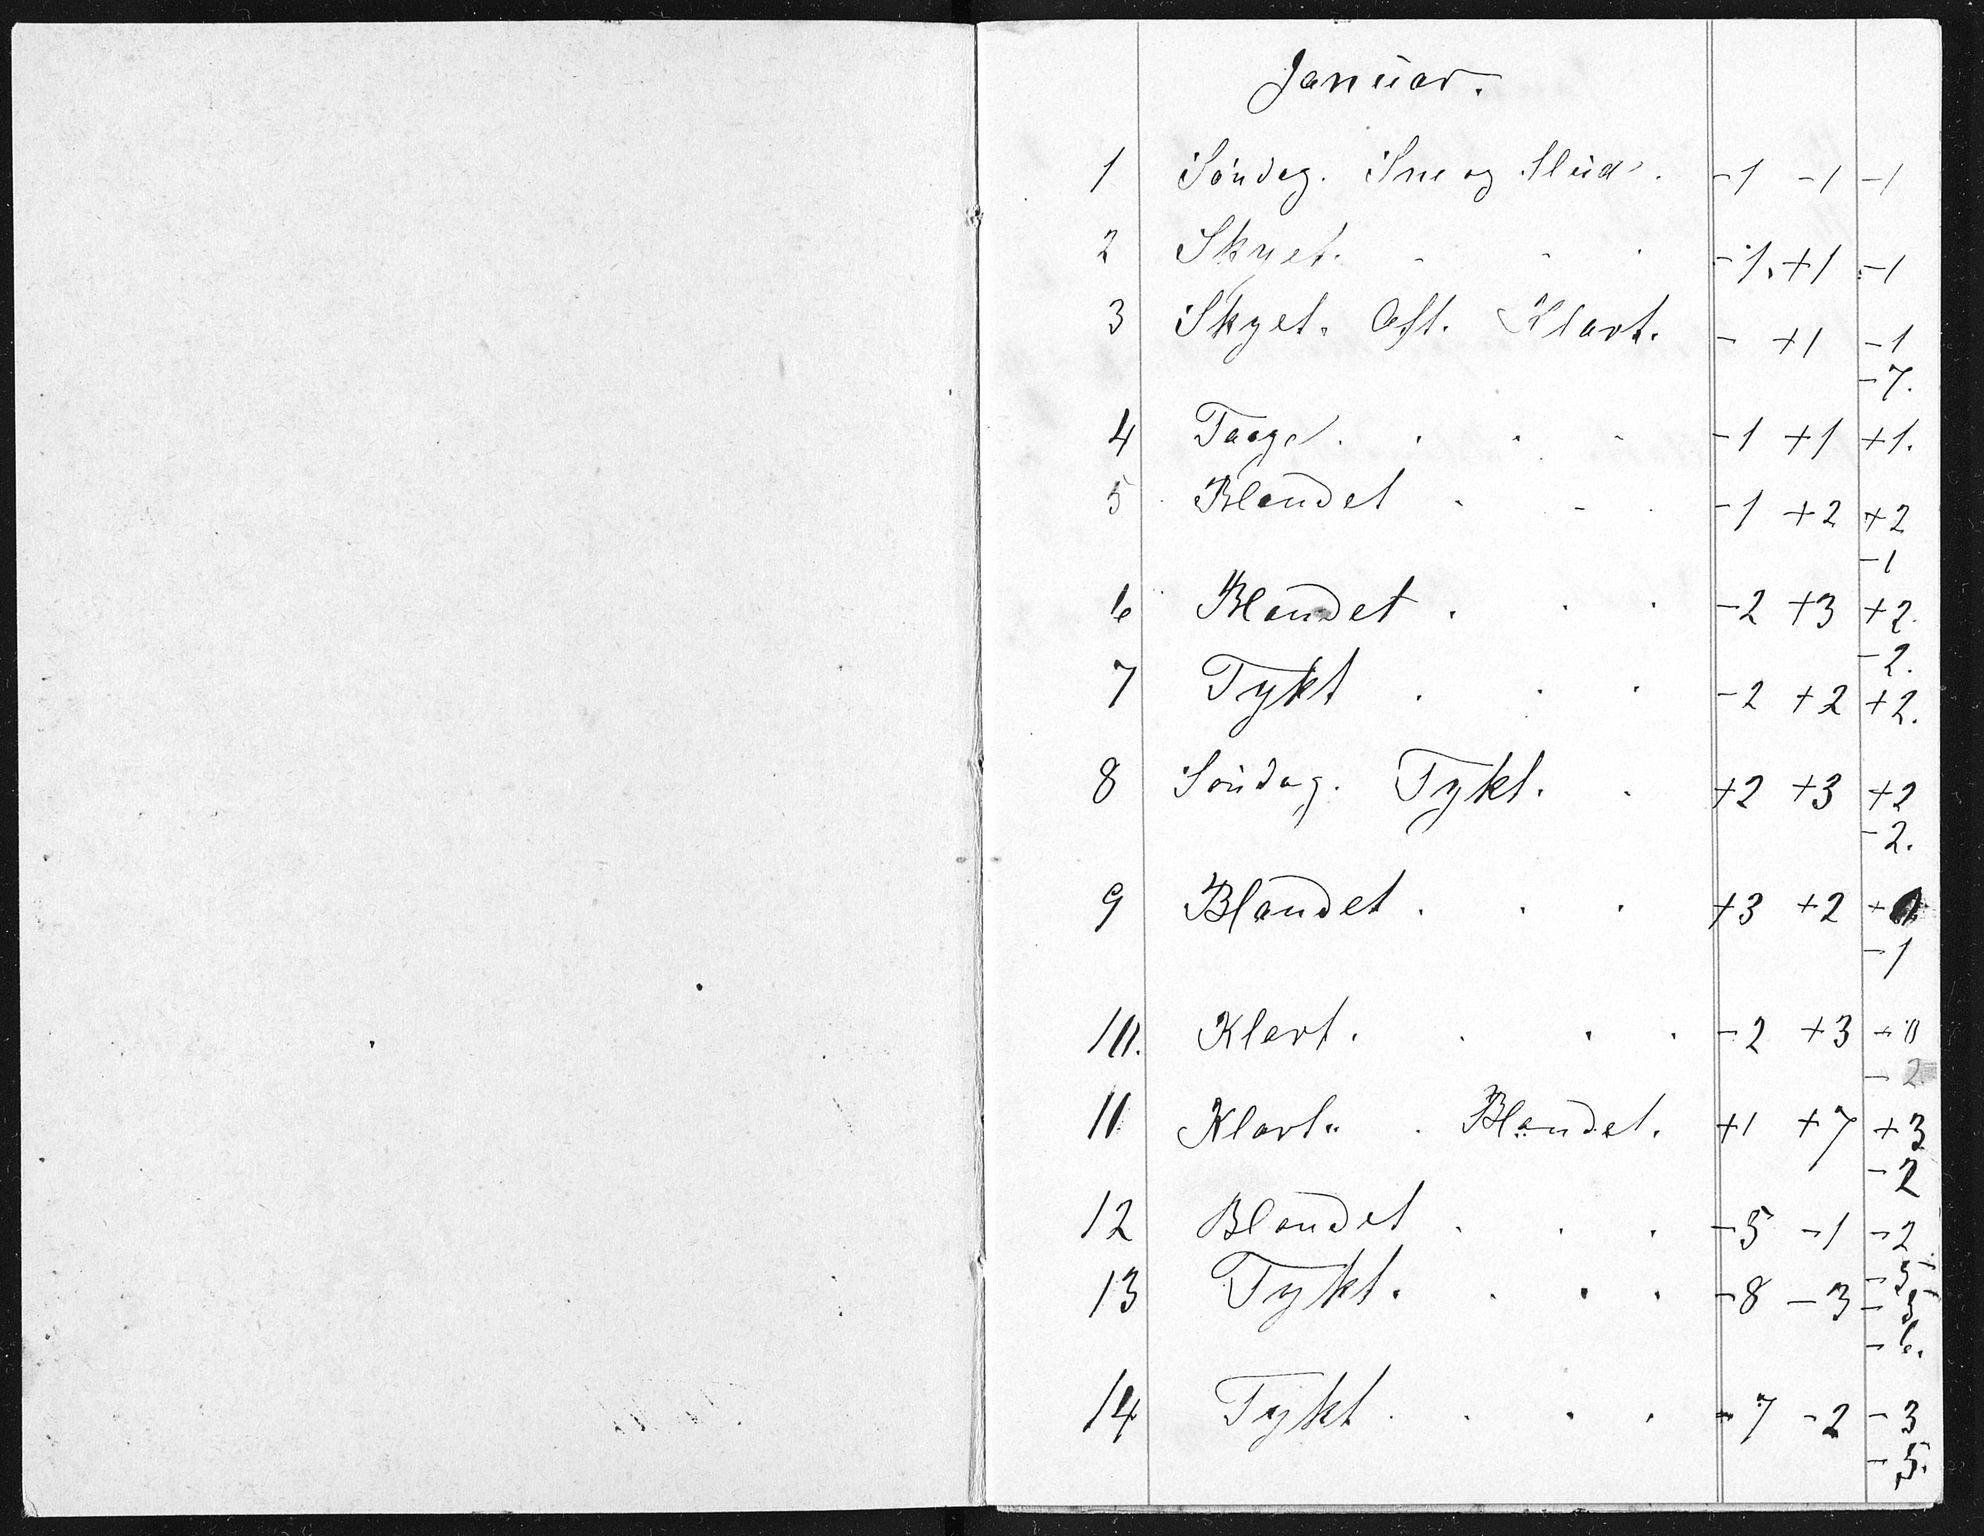 Januar.
1 Søndag. Sne og Slud. -1 -1 -1
2 Skyet. -1. +1 -1
3 Skyet. Aft. Klart. - +1 -1
-7.
4 Taage. -1 +1 +1.
5 Blandet -1 +2 +2
-1
6 Blandet. -2 +3 +2.
-2.
7 Tykt -2 +2 +2.
8 Søndag. Tykt. +2 +3 +2
-2.
9 Blandet. +3 +2 +
-1
10. Klart. -2 +3 +0
-2.
11 Klart. Blandet. +1 +7 +3
-2
12 Blandet -5 -1 -2
-5
13 Tykt. -8 -3 -3
-6.
14 Tykt -7 -2 -3
-5.